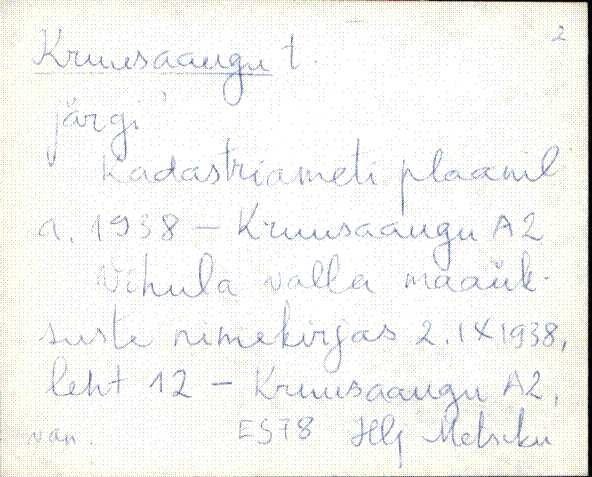 2
Kruusaaugu t.
järgi
Kadastriameti plaanil
a. 1938 – Kruusaaugu A2
Vihula valla maaük-
suste nimekirjas 2. IX 1938,
leht 12 – Kruusaaugu A2,
van. ES78 Hlj Metsiku